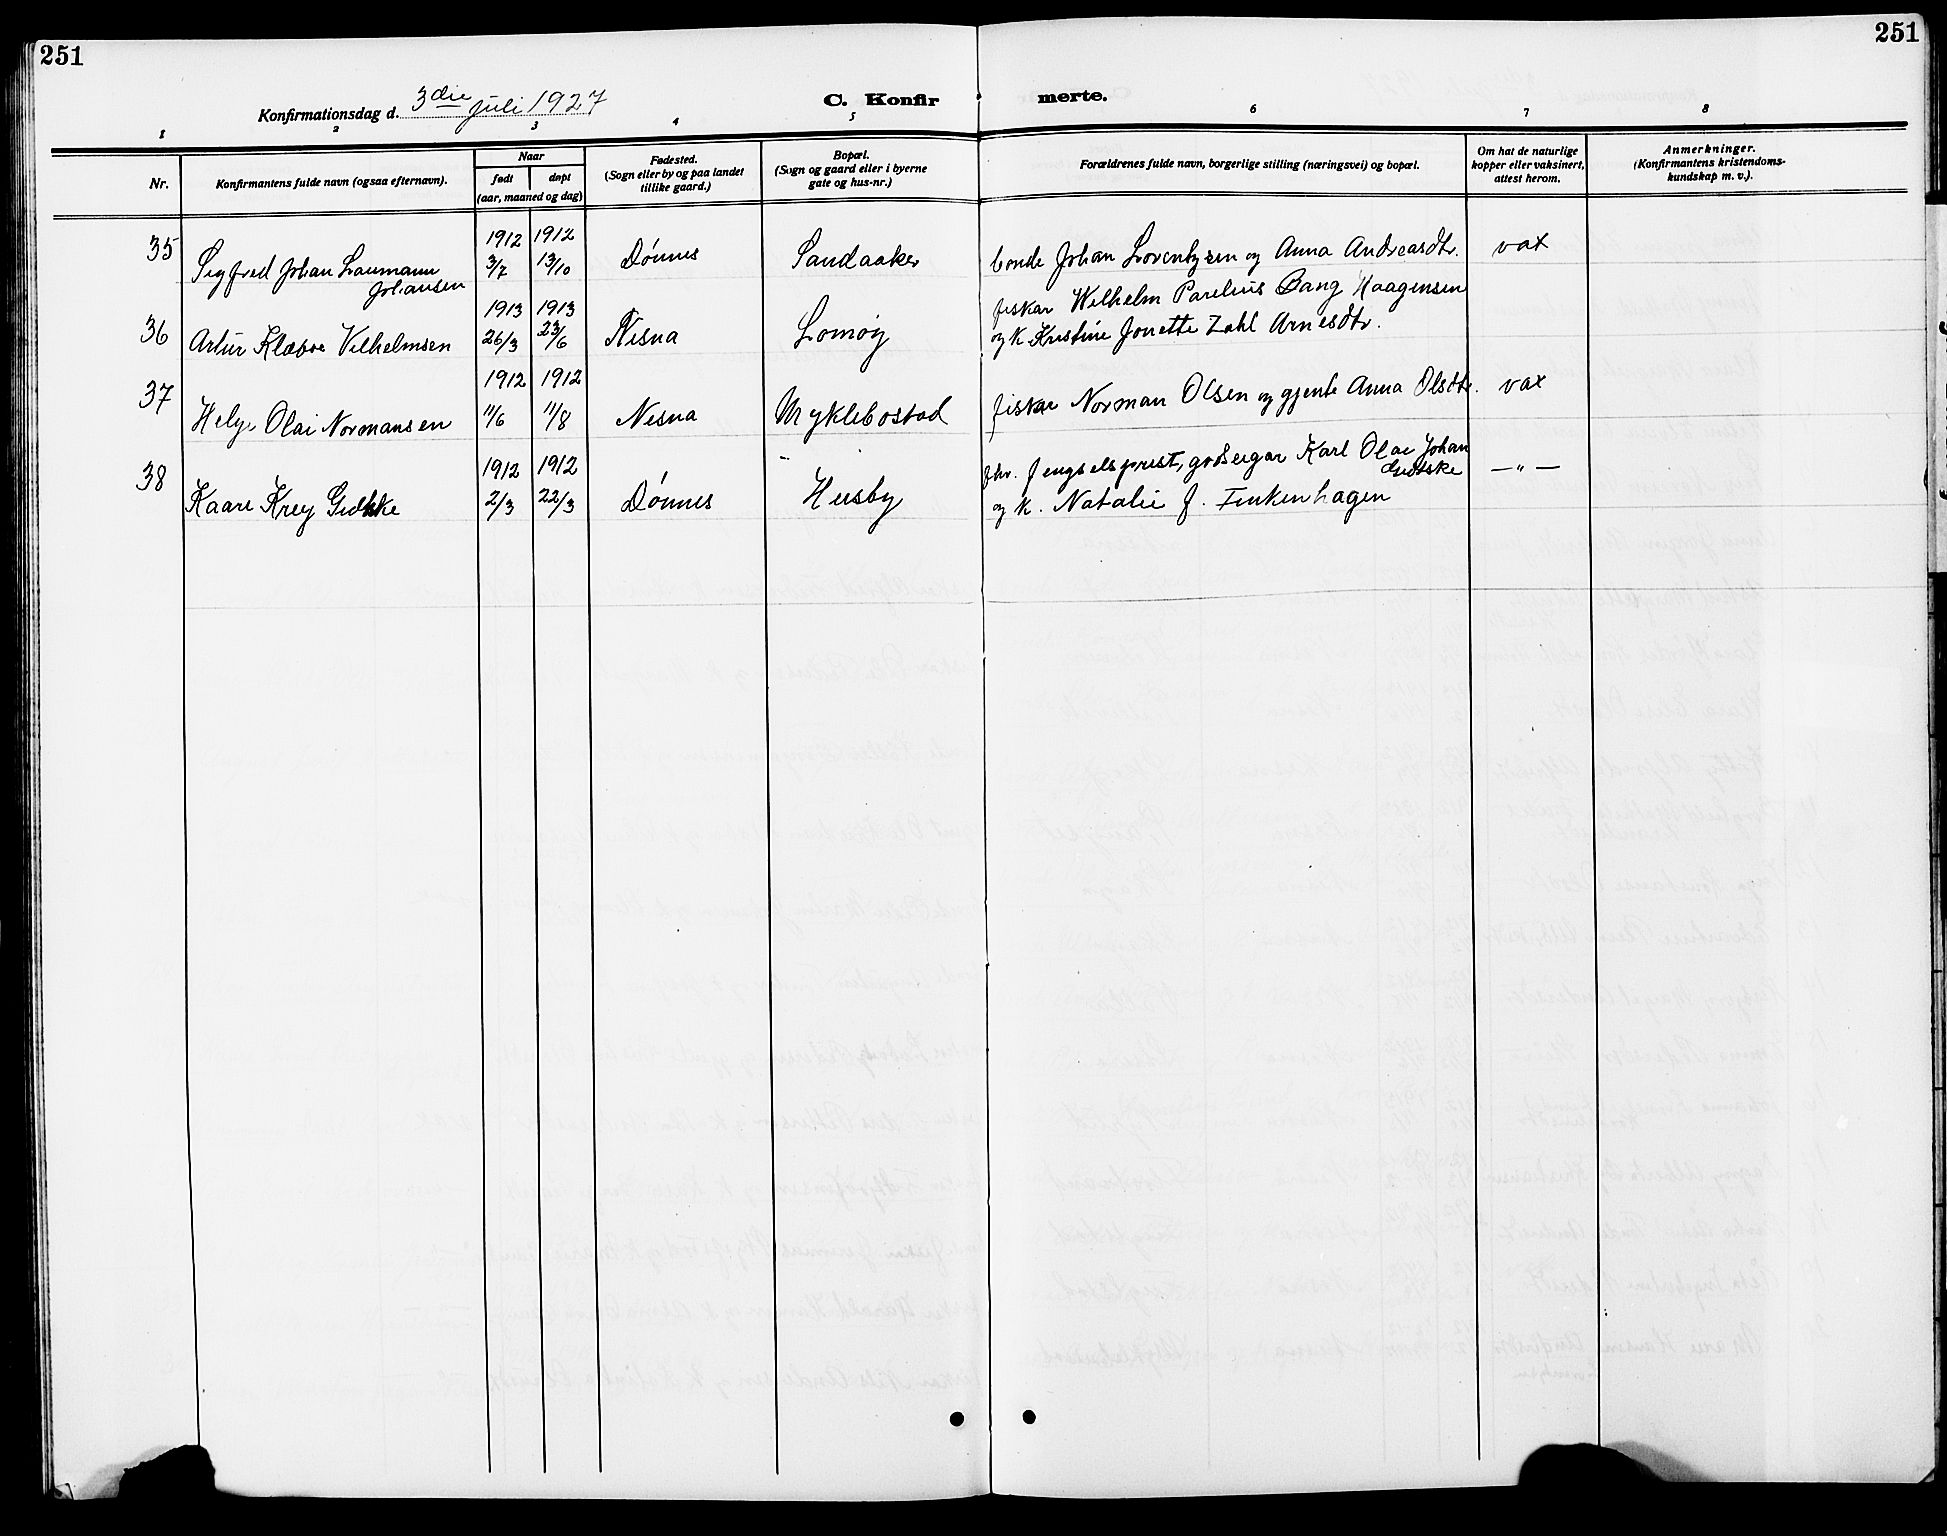 251
251
Konfirmationsdag d. 3die juli 1927
C. Konfir merte.
1 2 3 4 5 6 7 8
Nr.
Konfirmantens fulde navn (ogsaa efternavn).
Naar
født
døpt
(aar, maaned og dag)
Fødested.
(Sogn eller by og paa landet
tillike gaard.)
Bopæl.
(Sogn og gaard eller i byerne
gate og hus-nr.)
Forældrenes fulde navn, borgerlige stilling (næringsvei) og bopæl.
Om hat de naturlige
kopper eller vaksinert,
attest herom.
Anmerkninger.
(Konfirmantens kristendoms-
kundskap m. v.).
35 Sigfred Johan Laumann
Johansen
1912 1912
3/7 13/10
Dønnes
Sandaaker
bonde Johan Lorentzen og Anna Andreasdtr.
vax
36 Artur Klæboe Vilhelmsen
1913 1913
26/3 23/6
Nesna
Lomøy
fisker Wilhelm Parelius Bang Haagensen
og k. Kristine Jonette Zahl Arnesdtr.
37 Helge Olai Normansen
1912 1912
11/6 11/8
Nesna
Myklebostad
fisker Norman Olsen og gjente Anna Olsdtr.
vax
38 Kaare Krey Gidske
1912 1912
2/3 22/3
Dønnes
Husby
fhv. fengselsprest, godseigar Karl Olai Johan
Gidske
og k. Natalie f. Finkenhagen
—„—